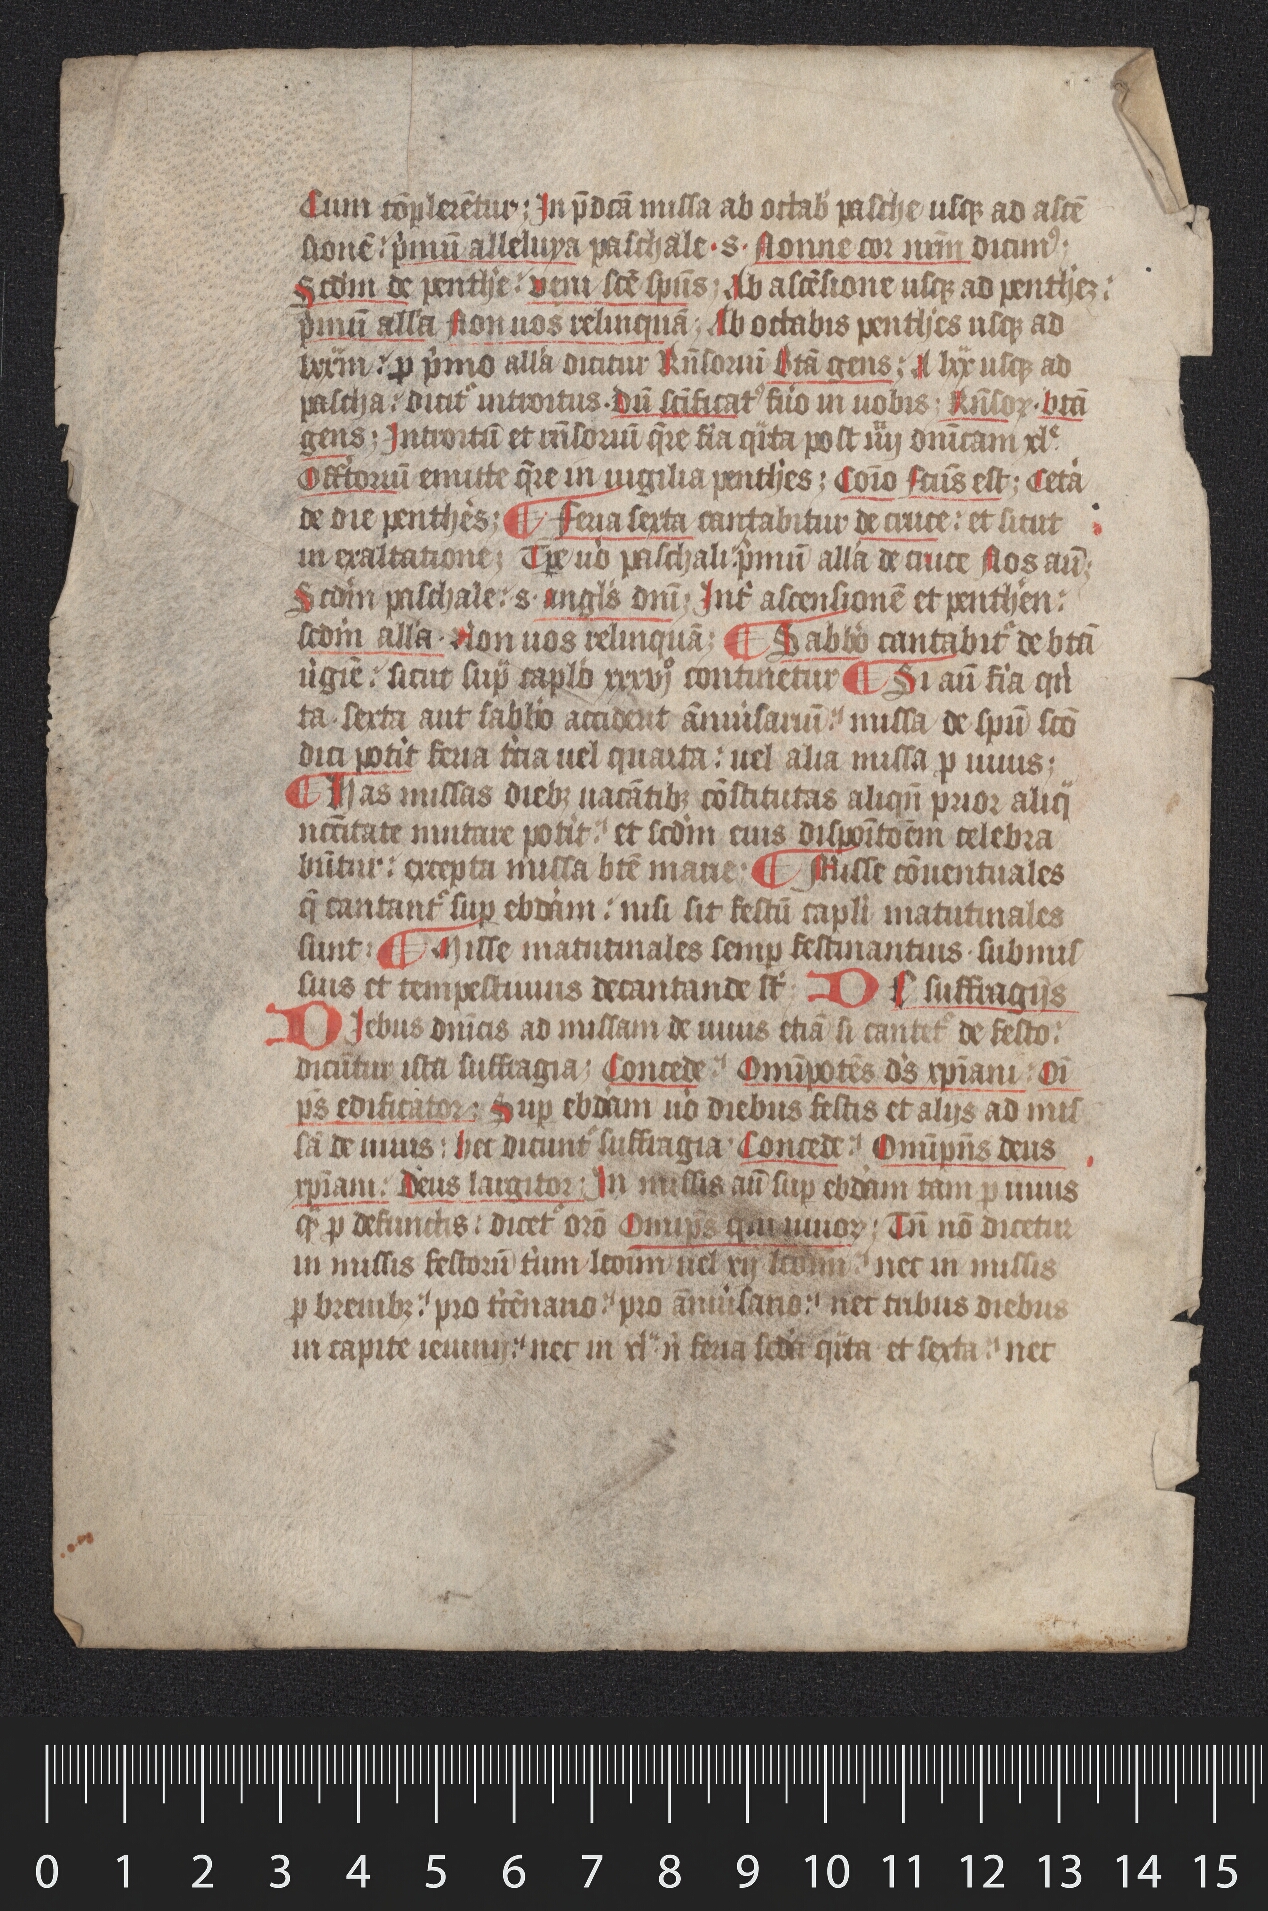 Cum cōplerētur; In p̄dcā missa ab octab pasche usq; ad ascē
sionē: p̄mū alleluya paschale · s · Nonne cor nrm̄ dicim⁹;
Scdm de penthe: veni scē spūs; Ab ascēsione usq; ad penthez:
p̄mū alla Non uos relinquā; Ab octabis penthes usq; ad
lxxm: p p̄mo alla dicitur Rn̄soriū btā gens; A lxx usq; ad
pascha: dicit᷑ introitus · Dū scīficat⁹ fuo in uobis; Rn̄sor · btā
gens; Introitū et rn̄soriū q̄re fia qīta post iiij dnīcam xlᵉ
Offtoriū emitte q̄re in uigilia penthes; Coīo scūs est; Cetā
de die penthes; ¶ Feria sexta cantabitur de cruce: et sicut
in exaltatione; Tpe uo paschali p̄mū alla de cruce Nos aū;
Scdm paschale: s · angls dnī; Int᷑ ascensionē et penthen:
scdm alla · Non uos relinquā; ¶ Sabbo cantabit᷑ de btā
uigīe: sicut sup̄ caplo xxxvj° continetur ¶ Si aū fia qī
ta · sexta aut sabbo accident ānīusariū: missa de spū scō
dici potit feria tcia uel quarta: uel alia missa p uiuis;
¶ Has missas dieb; uacātib; cōstitutas aliqn̄ prior aliq̄
ncc̄itate mutare potit: et scdm eius disposītōem celebra
būtur: excepta missa btē marie; ¶ Misse cōuentuales
q̄ cantant᷑ sup ebdam: nisi sit festū capli matutinales
sunt: ¶ Misse matutinales semp festinantius · submis
sius et tempestiuius decantande st᷑ DE suffragijs
DIebus dnīcis ad missam de uiuis etiā si cantet᷑ de festo:
dicūtur ista suffragia; Concede: Omīpotēs ds xpīani: Oī
ps edificator; Sup ebdam uo diebus festis et alijs ad mis
sā de uiuis: hec dicunt᷑ suffragia Concede: Omīpn̄s deus
xpīani: Deus largitor; In missis aū sup ebdam tam p uiuis
q̄ p defunctis: dicet᷑ orō Omīps qui uiuor; Tn̄ nō dicetur
in missis festorū trium lcoīm uel xij lcoīm: nec in missis
p breuib;: pro tricēnario: pro ānīusario: nec tribus diebus
in capite ieiunij: nec in xlᵃ n̄ feria scda qīta et sexta: nec